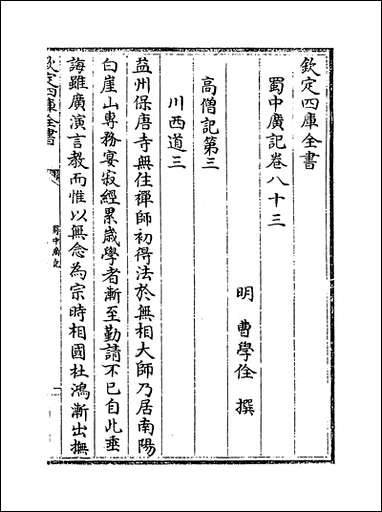 欽定四庫全書
蜀中廣記卷八十三
明 曹學佺 撰
高僧記第三
川西道三
益州保唐寺無住禪師初得法於無相大師乃居南陽
白崖山專務宴寂經累歲學者漸至勤請不已自此垂
誨雖廣演言教而惟以無念為宗時相國杜鴻漸出撫
欽定四庫全書
蜀中廣記
一